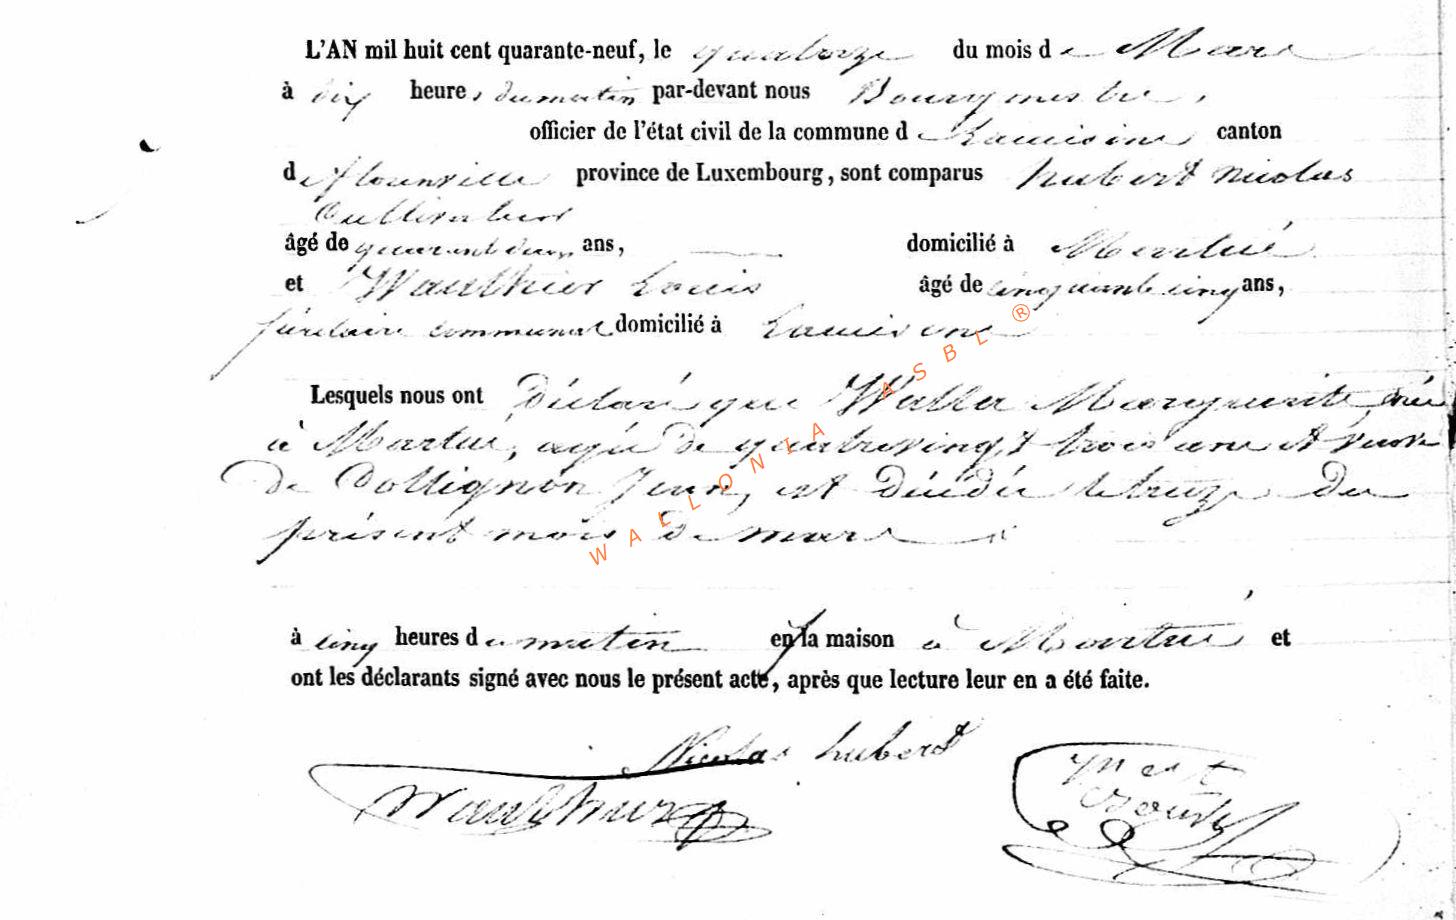 L'AN mil huit cent quarante-neuf, le quatorze du mois de Mars
à dix heures du matin par-devant nous Bourgmestre,
officier de l'état civil de la commune de Lacuisine canton
de florenville province de Luxembourg, sont comparus hubert nicolas
Cultivateur
âgé de quarante deux ans, domicilié à Martué
et Wauthier Louis âgé de cinquante cinq ans,
communal domicilié à Lacuisine
Lesquels nous ont Déclaré que Waller Marguerite, née
à Martué, agée de quatrevingt trois ans et veuve
De Collignon Jean, est Décédée le treize du
présent mois de mars
à cinq heures du matin en la maison à Martué et
ont les déclarants signé avec nous le présent acte, après que lecture leur en a été faite.
Nicolas hubert
Wauthier
WALLONIA ASBL ®